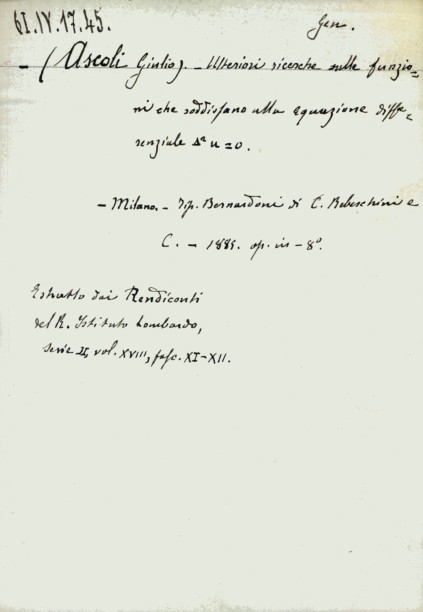 6I.IV.17.45.
Gen.
- (Ascoli Giulio). - Ulteriori ricerche sulle funzio=
ni che soddisfano alla equazione diffe=
renziale Δ² u = 0.
- Milano. - Tip. Bernardoni di C. Rebeschini e
C. - 1885. op. in - 8°.
Estratto dai Rendiconti
del R. Istituto Lombardo,
serie II, vol. XVIII, fasc. XI-XII.